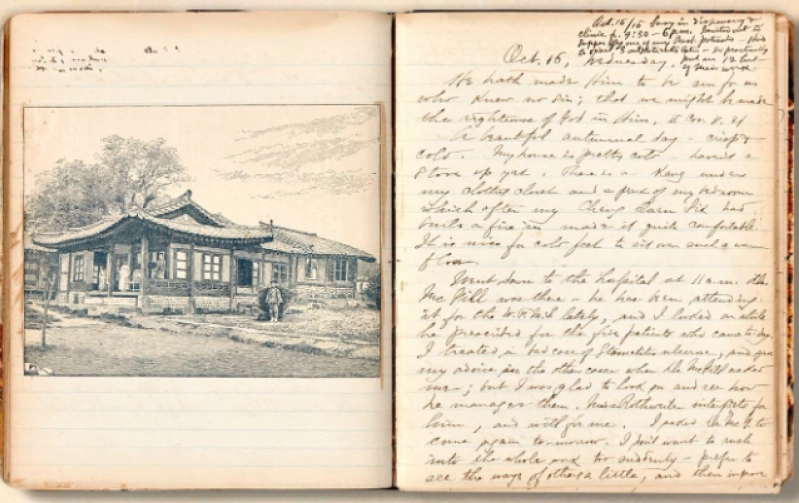 Oct. 16/15 busy in dispensary &
clinic fr. 9:30 – 6 p.m.
Oct. 15, Wednesday.
He hath made Him to be sin for us
who knew no sin; that we might be made
the righteousness of God in Him. II Cor. V. 21
A beautiful autumnal day – crisp &
cold. My house is pretty cold – haven't a
stove up yet. There is a Kang under
my clothes closet and a part of my bedroom
which after my had
built a fire in made it quite comfortable.
It is nice for cold feet to sit over such a warm
floor.
Went down to the hospital at 11 a.m. Dr.
McGill was there – he has been attending
it for the W.F.M.S. lately, and I looked on while
he prescribed for the five patients who came to-day.
I treated a bad case of Stomatitis ulcerosa, and gave
my advice in the other cases when Dr. McGill asked
me; but I was glad to look on and see how
he manages them. Miss Rothweiler interprets for
him, and will for me. I asked Dr. McG. to
come again to-morrow. I don't want to rush
into the whole work too suddenly – prefer to
see the ways of others a little, and then